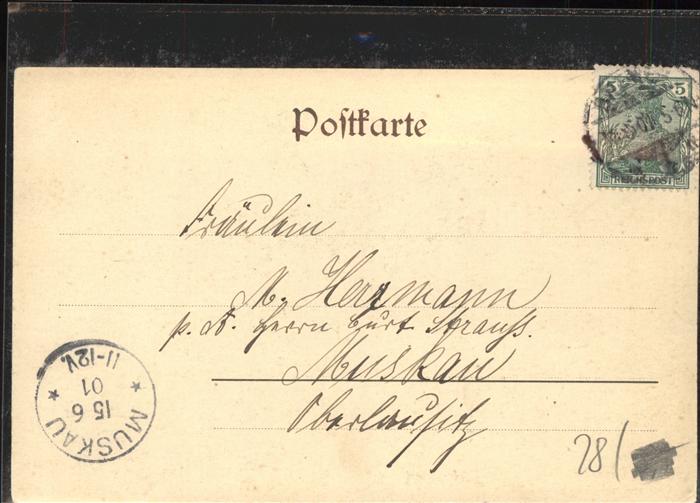 Postkarte
5 5
REICHSPOST
Fräulein
M. Herrmann
p. A. Herrn Curt Strauss.
Muskau
Oberlausitz
MUSKAU
15 6
01
11-12V.
28/